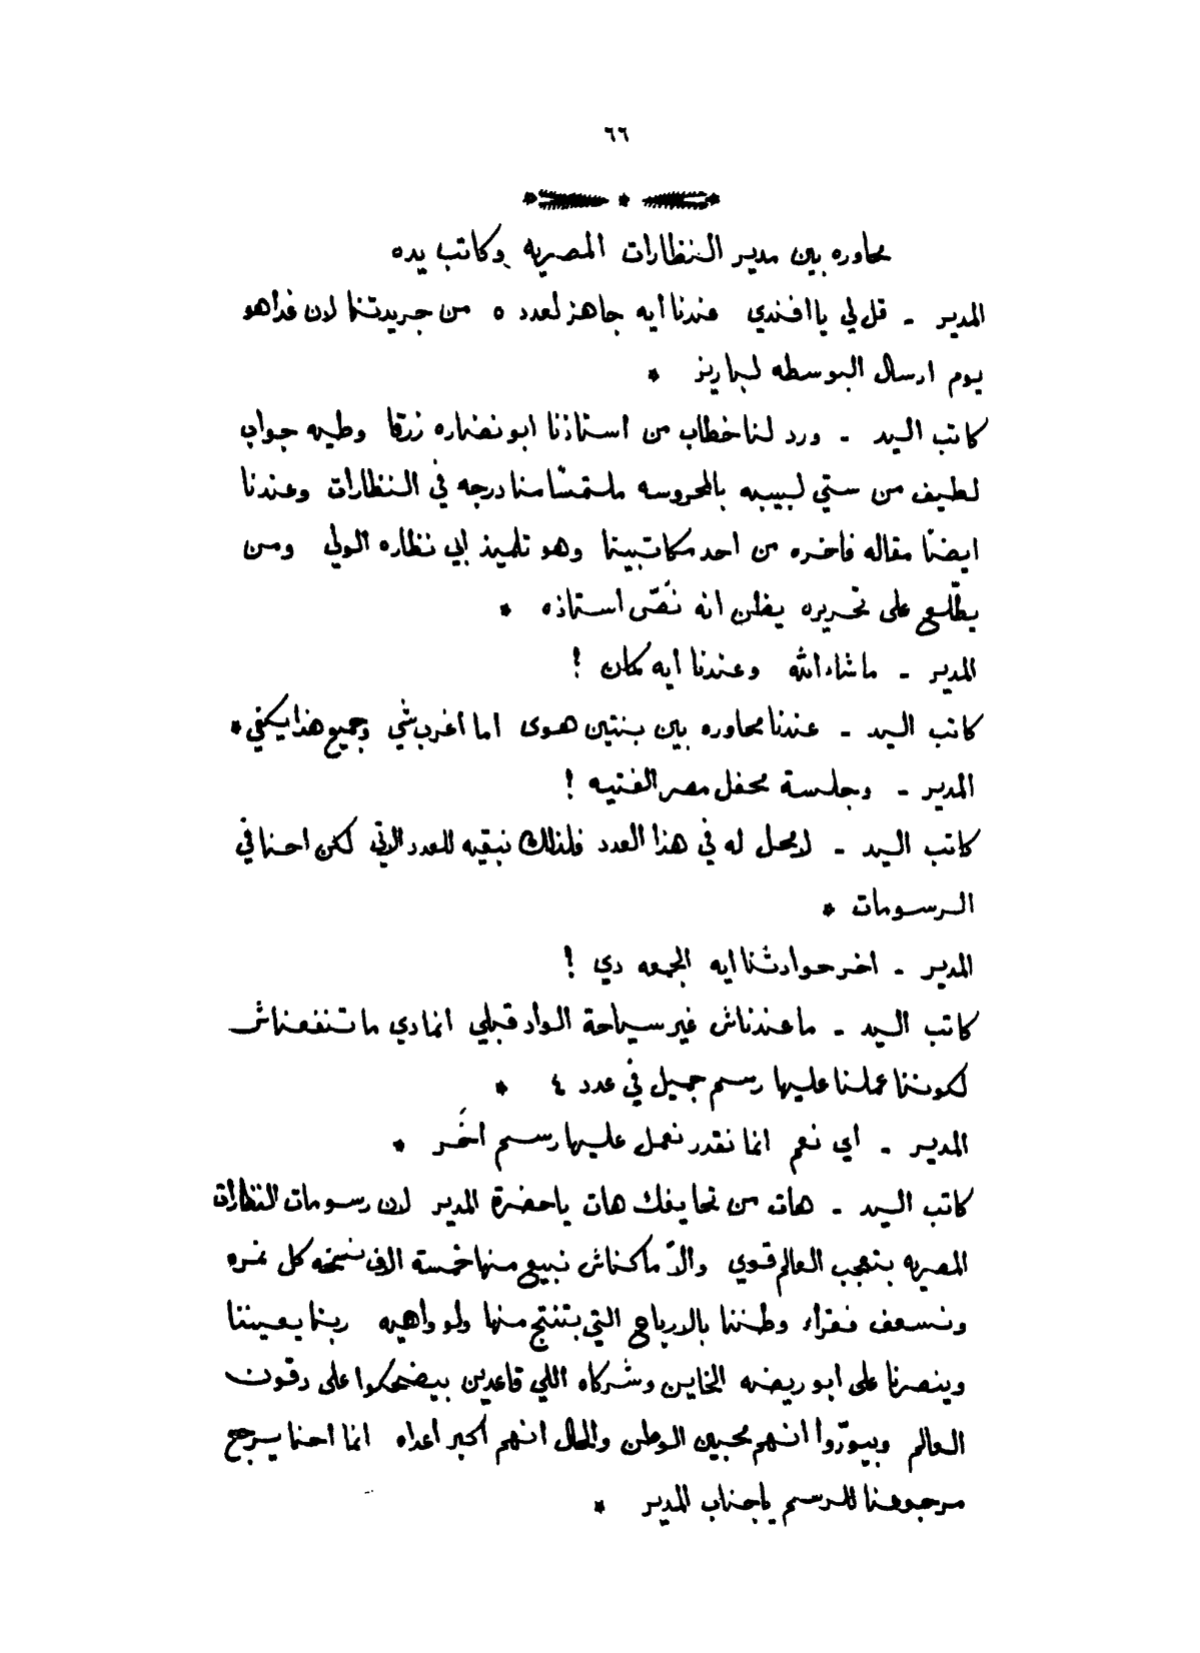 ٦٦
محاوره بين مدير النظارات المصريه وكاتب يده
المدير - قل لي يا افندي عندنا ايه جاهز لعدد ٥ من جريدتنا لان غدا هو
يوم ارسال البوسطه لباريز *
كاتب اليد - ورد لنا خطاب من استاذنا ابو نضاره زرقا وطيه جواب
لطيف من ستي لبيبه بالمحروسه ملتمسًا منا درجه في النظارات وعندنا
ايضًا مقاله فاخره من احد مكاتبينا وهو تلميذ ابي نظاره الولي ومن
يطّلع على تحريره يظن انه نَصّ استاذه *
المدير - ماشاء الله وعندنا ايه كمان !
كاتب اليد - عندنا محاوره بين بنتين هوى اما اغرب شي وجميع هذا يكفي *
المدير - وجلسة محفل مصر الفتيه !
كاتب اليد - لا محل له في هذا العدد فلذلك نبقيه للعدد الاتي لكن احنا في
الرسومات *
المدير - اخر حوادثنا ايه الجمعه دي !
كاتب اليد - ما عندناش غير سياحة الواد قبلي انما دي ما تنفعناش
لكوننا عملنا عليها رسم جميل في عدد ٤ *
المدير - اي نعم انما نقدر نعمل عليها رسم اخَر *
كاتب اليد - هات من تحايفك هات يا حضرة المدير لان رسومات النظارات
المصريه بتعجب العالم قوي والاّ ما كناش نبيع منها خمسة الاف نسخه كل نمره
ونسعف فقراء وطننا بالارباح التي بتنتج منها ولو واهيه ربنا يعيننا
وينصرنا على ابو ريضه الخاين وشركاه اللي قاعدين بيضحكوا على دقون
العالم وبيورّوا انهم محبين الوطن والحال انهم اكبر اعداه انما احنا يرجع
مرجوعنا للرسم يا جناب المدير *